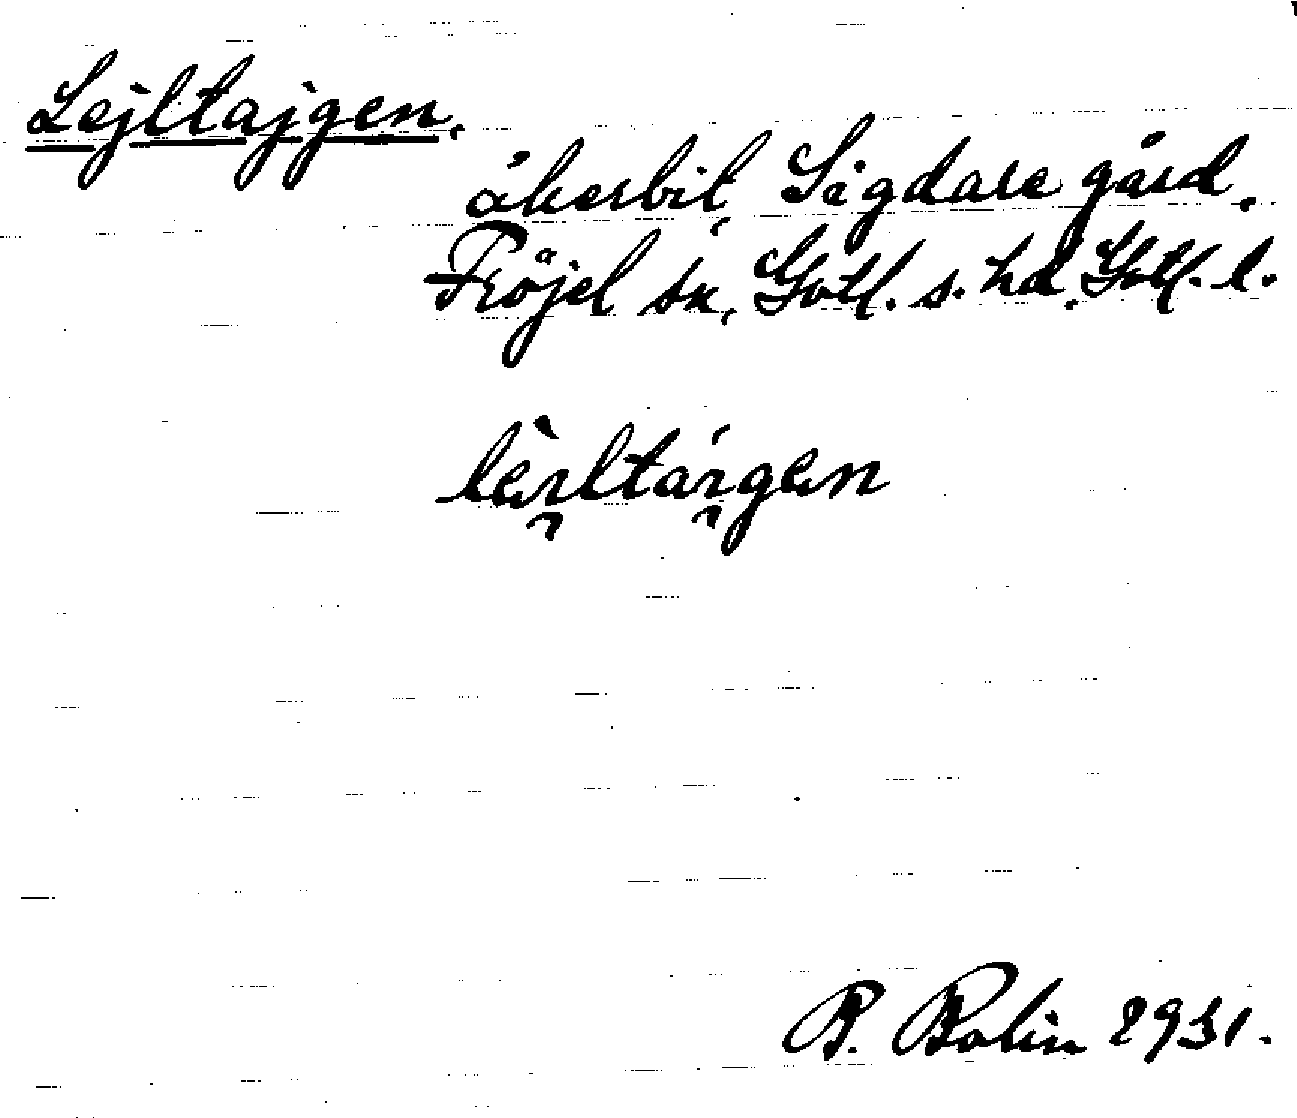 Lejltajgen.
åkerbit, Sigdare gård,
Fröjel sn, Gotl. s. hd. Gotl. l.
B. Bolin 1931.